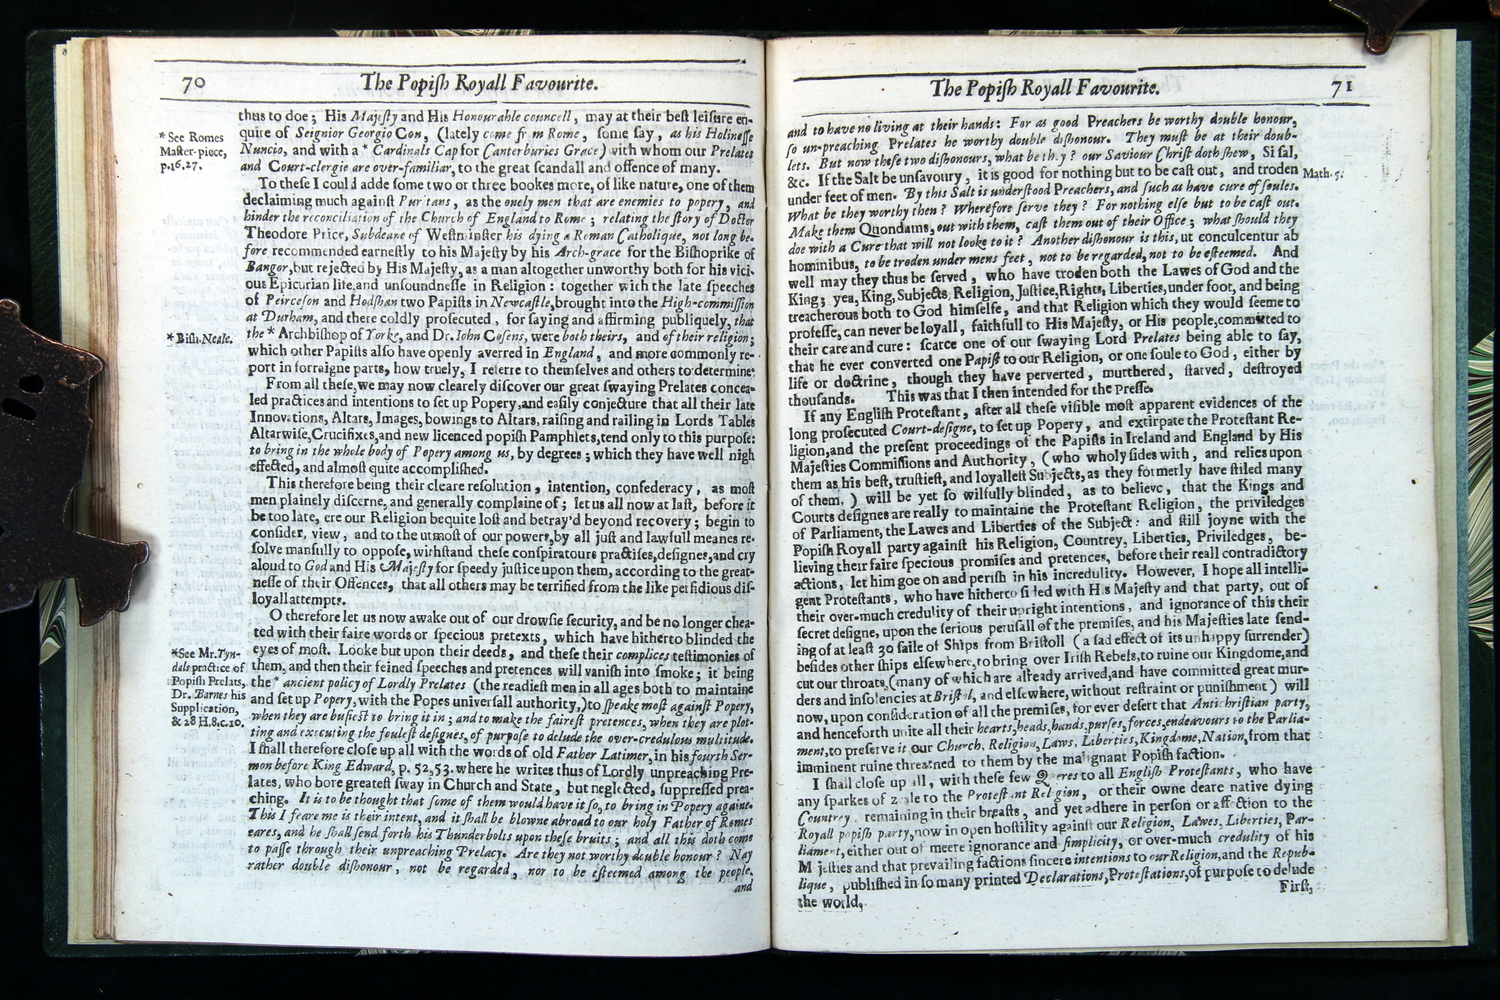 70 The Popiſh Royall Favourite.
thus to doe; His Majeſty and His Honourable councell, may at their beſt leiſure en-
quire of Seignior Georgio Con, (lately come from Rome, ſome ſay, as his Holineſſe
Nuncio, and with a * Cardinals Cap for Canterburies Grace) with whom our Prelates
and Court-clergie are over-familiar, to the great ſcandall and offence of many.
* See Romes
Maſter-piece,
p.16.27.
To theſe I could adde ſome two or three bookes more, of like nature, one of them
declaiming much againſt Puritans, as the onely men that are enemies to popery, and
hinder the reconciliation of the Church of England to Rome; relating the ſtory of Doctor
Theodore Price, Subdeane of Weſtminſter his dying a Roman Catholique, not long be-
fore recommended earneſtly to his Majeſty by his Arch-grace for the Biſhoprike of
Bangor, but rejected by His Majeſty, as a man altogether unworthy both for his vici-
ous Epicurian life, and unſoundneſſe in Religion: together with the late ſpeeches
of Peirceſon and Hodſhan two Papiſts in Newcaſtle, brought into the High-commiſſion
at Durham, and there coldly proſecuted, for ſaying and affirming publiquely, that
the * Archbiſhop of Yorke, and Dr. Iohn Coſens, were both theirs, and of their religion;
which other Papiſts alſo have openly averred in England, and more commonly re-
port in forraigne parts, how truely, I referre to themſelves and others to determine:
* Biſh. Neale.
From all theſe, we may now clearely diſcover our great ſwaying Prelates concea-
led practices and intentions to ſet up Popery, and eaſily conjecture that all their late
Innovations, Altars, Images, bowings to Altars, raiſing and railing in Lords Tables
Altarwiſe, Crucifixes, and new licenced popiſh Pamphlets, tend only to this purpoſe:
to bring in the whole body of Popery among us, by degrees; which they have well nigh
effected, and almoſt quite accompliſhed.
This therefore being their cleare reſolution, intention, confederacy, as moſt
men plainely diſcerne, and generally complaine of; let us all now at laſt, before it
be too late, ere our Religion be quite loſt and betray'd beyond recovery; begin to
conſider, view, and to the utmoſt of our power, by all juſt and lawfull meanes re-
ſolve manfully to oppoſe, withſtand theſe conſpiratours practiſes, deſignes, and cry
aloud to God and His Majeſty for ſpeedy juſtice upon them, according to the great-
neſſe of their Offences, that all others may be terrified from the like perfidious diſ-
loyall attempts.
O therefore let us now awake out of our drowſie ſecurity, and be no longer chea-
ted with their faire words or ſpecious pretexts, which have hitherto blinded the
eyes of moſt. Looke but upon their deeds, and theſe their complices teſtimonies of
them, and then their feined ſpeeches and pretences will vaniſh into ſmoke; it being
the * ancient policy of Lordly Prelates (the readieſt men in all ages both to maintaine
and ſet up Popery, with the Popes univerſall authority,) to ſpeake moſt againſt Popery,
when they are buſieſt to bring it in; and to make the faireſt pretences, when they are plot-
ting and executing the fouleſt deſignes, of purpoſe to delude the over-credulous multitude.
I ſhall therefore cloſe up all with the words of old Father Latimer, in his fourth Ser-
mon before King Edward, p. 52,53. where he writes thus of Lordly unpreaching Pre-
lates, who bore greateſt ſway in Church and State, but neglected, ſuppreſſed prea-
ching. It is to be thought that ſome of them would have it ſo, to bring in Popery againe.
This I feare me is their intent, and it ſhall be blowne abroad to our holy Father of Romes
eares, and he ſhall ſend forth his Thunderbolts upon theſe bruits; and all this doth come
to paſſe through their unpreaching Prelacy. Are they not worthy double honour? Nay
rather double diſhonour, not be regarded, nor to be eſteemed among the people,
and
*See Mr. Tyn-
dals practice of
Popiſh Prelats,
Dr. Barnes his
Supplication,
& 28 H.8.c.10.
The Popiſh Royall Favourite. 71
and to have no living at their hands: For as good Preachers be worthy double honour,
ſo un-preaching Prelates be worthy double diſhonour. They muſt be at their doub-
lets. But now theſe two diſhonours, what be they? our Saviour Chriſt doth ſhew, Si ſal,
&c. If the Salt be unſavoury, it is good for nothing but to be caſt out, and troden
under feet of men. By this Salt is underſtood Preachers, and ſuch as have cure of ſoules.
What be they worthy then? Wherefore ſerve they? For nothing elſe but to be caſt out.
Make them Quondams, out with them, caſt them out of their Office; what ſhould they
doe with a Cure that will not looke to it? Another diſhonour is this, ut conculcentur ab
hominibus, to be troden under mens feet, not to be regarded, not to be eſteemed. And
well may they thus be ſerved, who have troden both the Lawes of God and the
King; yea, King, Subjects, Religion, Juſtice, Rights, Liberties, under foot, and being
treacherous both to God himſelfe, and that Religion which they would ſeeme to
profeſſe, can never be loyall, faithfull to His Majeſty, or His people, committed to
their care and cure: ſcarce one of our ſwaying Lord Prelates being able to ſay,
that he ever converted one Papiſt to our Religion, or one ſoule to God, either by
life or doctrine, though they have perverted, murthered, ſtarved, deſtroyed
thouſands. This was that I then intended for the Preſſe.
Math. 5.
If any Engliſh Proteſtant, after all theſe viſible moſt apparent evidences of the
long proſecuted Court-deſigne, to ſet up Popery, and extirpate the Proteſtant Re-
ligion, and the preſent proceedings of the Papiſts in Ireland and England by His
Majeſties Commiſſions and Authority, (who wholy ſides with, and relies upon
them as his beſt, truſtieſt, and loyalleſt Subjects, as they formerly have ſtiled many
of them,) will be yet ſo wilfully blinded, as to believe, that the Kings and
Courts deſignes are really to maintaine the Proteſtant Religion, the priviledges
of Parliament, the Lawes and Liberties of the Subject: and ſtill joyne with the
Popiſh Royall party againſt his Religion, Countrey, Liberties, Priviledges, be-
lieving their faire ſpecious promiſes and pretences, before their reall contradictory
actions, let him goe on and periſh in his incredulity. However, I hope all intelli-
gent Proteſtants, who have hitherto ſided with His Majeſty and that party, out of
their over-much credulity of their upright intentions, and ignorance of this their
ſecret deſigne, upon the ſerious peruſall of the premiſes, and his Majeſties late ſend-
ing of at leaſt 30 ſaile of Ships from Briſtoll (a ſad effect of its unhappy ſurrender)
beſides other ſhips elſewhere, to bring over Iriſh Rebels, to ruine our Kingdome, and
cut our throats, (many of which are already arrived, and have committed great mur-
ders and inſolencies at Briſtol, and elſewhere, without reſtraint or puniſhment) will
now, upon conſideration of all the premiſes, for ever deſert that Antichriſtian party,
and henceforth unite all their hearts, heads, hands, purſes, forces, endeavours to the Parlia-
ment, to preſerve it our Church, Religion, Laws, Liberties, Kingdome, Nation, from that
imminent ruine threatned to them by the malignant Popiſh faction.
I ſhall cloſe up all, with theſe few Queres to all Engliſh Proteſtants, who have
any ſparkes of zeale to the Proteſtant Religion, or their owne deare native dying
Countrey remaining in their breaſts, and yet adhere in perſon or affection to the
Royall popiſh party, now in open hoſtility againſt our Religion, Lawes, Liberties, Par-
liament, either out of meere ignorance and ſimplicity, or over-much credulity of his
Majeſties and that prevailing factions ſincere intentions to our Religion, and the Repub-
lique, publiſhed in ſo many printed Declarations, Proteſtations, of purpoſe to delude
the world,
Firſt,